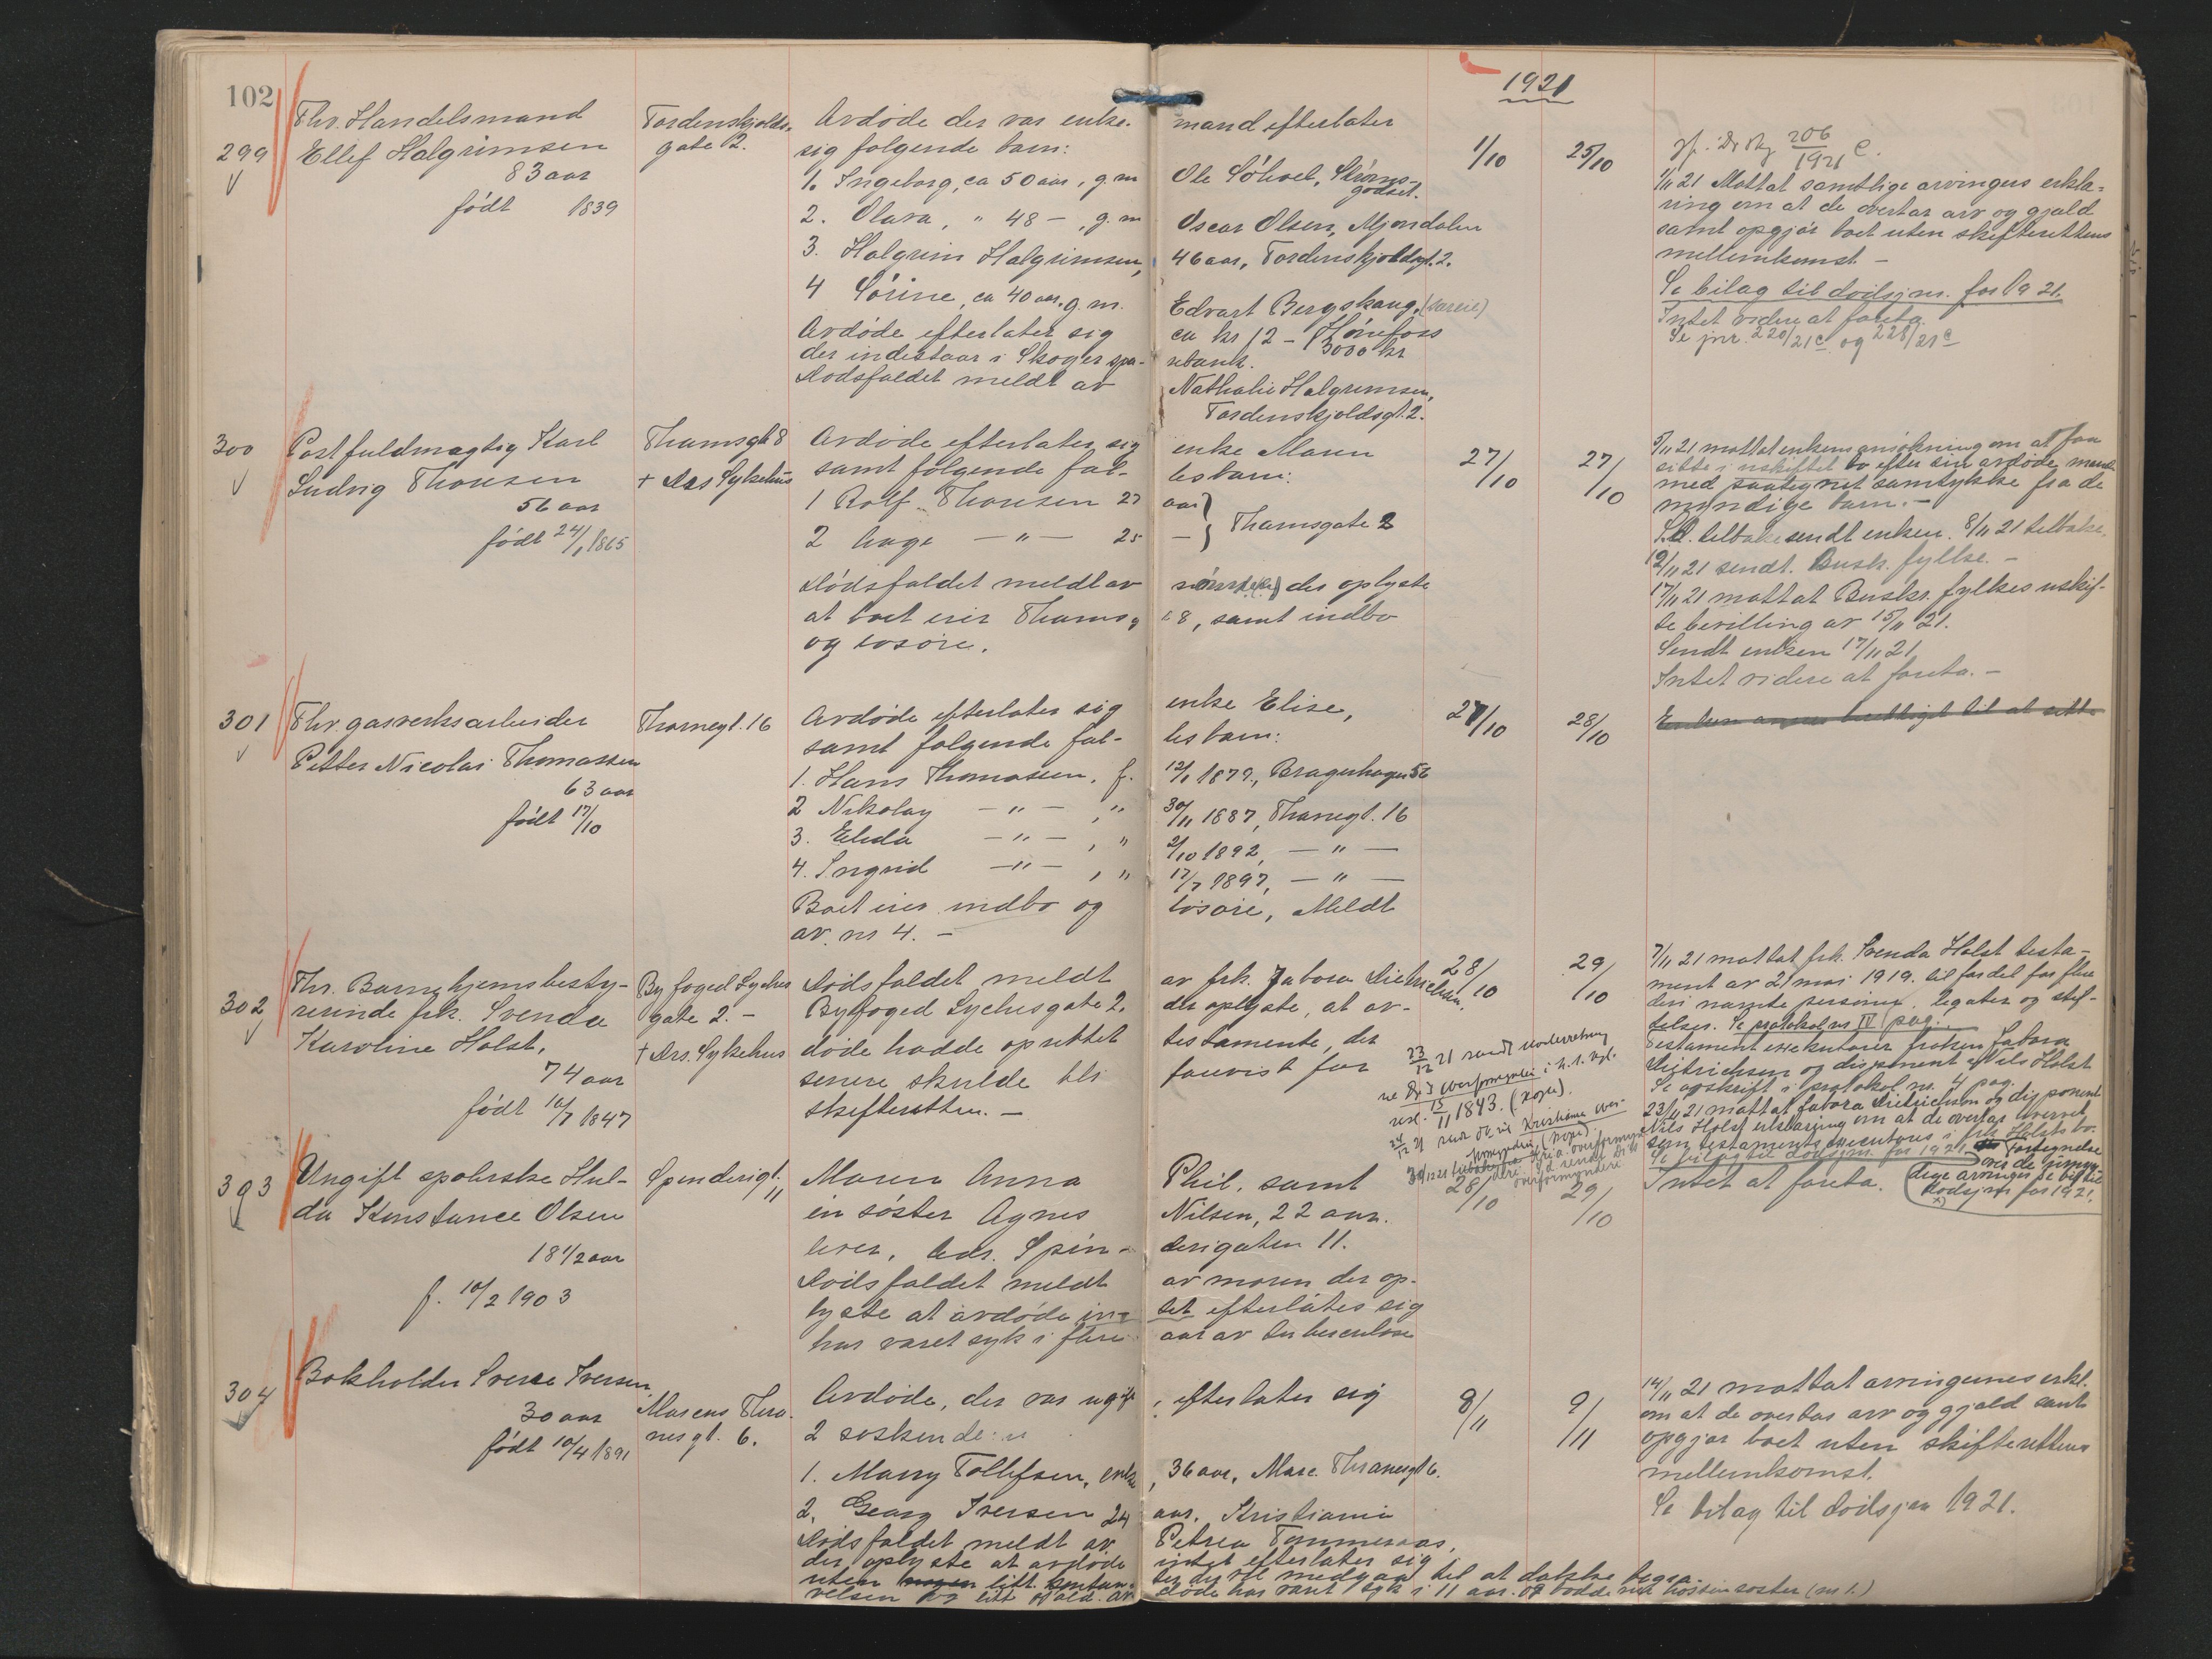 102
1921
299
Fhv. Handelsmand
Ellef Halgrimsen
83 aar
født 1839
Tordenskjolds-
gate 2.
Avdøde der var enke-
mand efterlater
sig følgende barn:
1. Ingeborg, ca 50 aar, g. m
Ole Sólvel, Strøms-
godset.
2. Olava, " 48 – , g. m
Oscar Olsen, Mjøndalen
3. Halgrim Halgrimsen,
46 aar, Tordenskjoldsgt. 2.
4 Sørine, ca 40 aar, g. m.
Edvart Bergskaug,
Avdøde efterlater sig
ca kr 12 – Hønefoss
3000 kr
der indestaar i Skoger spa-
rebank.
Dødsfaldet meldt av
Nathalie Halgrimsen,
Tordenskjoldsgt. 2.
1/10
25/10
206
1921 C.
1/11 21 Mottat samtlige arvingers erklæ-
ring om at de overtar arv og gjæld
samt opgjør boet uten skifterettens
mellemkomst –
Se bilag til dødsjnr. for 1921.
Intet videre at foreta.
Se jnr. 220/21 C og 228/21 C
300
Postfuldmægtig Karl
Ludvig Thonsen
56 aar
født 24/1 1865
Thamsgt 8
+ Drs Sykehus
Avdøde efterlater sig
enke Maren
samt følgende fæl-
lesbarn:
1 Rolf Thonsen 27
aar
2 Aage – " – 25
–
Thamsgate 2
Dødsfaldet meldt av
der oplyste
at boet eier Thamsg
t 8, samt indbo
og løsøre.
27/10
27/10
5/11 21 mottat enkens ansøkning om at faa
sitte i uskiftet bo efter sin avdøde mand
med paategnet samtykke fra de
myndige barn. –
S.D. tilbakesendt enken. 8/11 21 tilbake.
12/11 21 sendt. Busk. fylke. –
17/11 21 mottat Buskr. fylkes uskif-
te bevilling av 15/11 21.
Sendt enken 17/11 21
Intet videre at foreta. –
301
Fhv. gasverksarbeider
Petter Nicolai Thomassen
63 aar
født 17/10
Thornegt. 16
Avdøde efterlater sig
enke Elise,
samt følgende fæl-
lesbarn:
1. Hans Thomassen, f.
12/1 1879, Bragerhagen 56
2 Nikolay – " – , "
30/11 1887, Thornegt. 16
3. Elida – " – , "
2/10 1892, – " –
4. Ingrid – " – , "
17/7 1897, – " –
Boet eier indbo og
løsøre, Meldt
av nr 4. –
27/10
28/10
302
Fhv. Barnehjemsbesty-
rerinde frk. Svenda
Karoline Holst,
74 aar
født 10/7 1847
Byfoged Lyches
gate 2. –
+ Drs. Sykehus
Dødsfaldet meldt
av frk. Fabora Dietrichson,
Byfoged Lychesgate 2.
der oplyste, at av-
døde hadde oprettet
testamente, der
senere skulde bli
forevist for
skifteretten. –
28/10
29/10
7/11 21 mottat frk. Svenda Holst testa-
ment av 21 mai 1919. til fordel for flere
deri nævnte personer, legater og stif-
telser. Se protokol nr IV pag.
Testamentexekutorer frøken Fabora
Dietrichson og disponent Nils Holst
Se avskrift i protokol nr. 4 pag.
23/11 21 mottat Fabora Dietrichson og disponent
Nils Holst erklæring om at de overtar hvervet
som testamentsexecutores i frk Holsts bo.
Se bilag til dødsjnr. for 1921.
23/12 21 sendt underretning
resl. 15/11 1843. (kopi).
303
Ungift spolerske Hul-
da Konstance Olsen
18 1/2 aar
f. 10/2 1903
Spinderigt.
11
Moren Anna
Phil. samt
en søster Agnes
Nilsen, 22 aar.
lever, Adr. Spin-
derigaten 11.
Dødsfaldet meldt
av moren der op-
lyste at avdøde in-
tet efterlater sig
har været syk i flere
aar av tuberculose
28/10
29/10
Intet at foreta.
Fortegnelse
over de umyn-
dige arvinger se bil til
dødsjnr for 1921.
304
Bokholder Sverre Iversen,
30 aar
født 10/4 1891
Marcus Thra-
nesgt. 6.
Avdøde, der var ugift
, efterlater sig
2 søskende:
1. Marry Tollefsen, enke
, 36 aar, Marc. Thranesgt 6.
2. Georg Iversen 24
aar, Kristiania
Dødsfaldet meldt av
Petrea Tømmeraas,
der oplyste at avdøde
intet efterlater sig
8/11
9/11
14/11 21 mottat arvingernes erkl.
om at de overtar arv og gjæld samt
opgjør boet uten skifterettens
mellemkomst.
Se bilag til dødsjnr 1921.